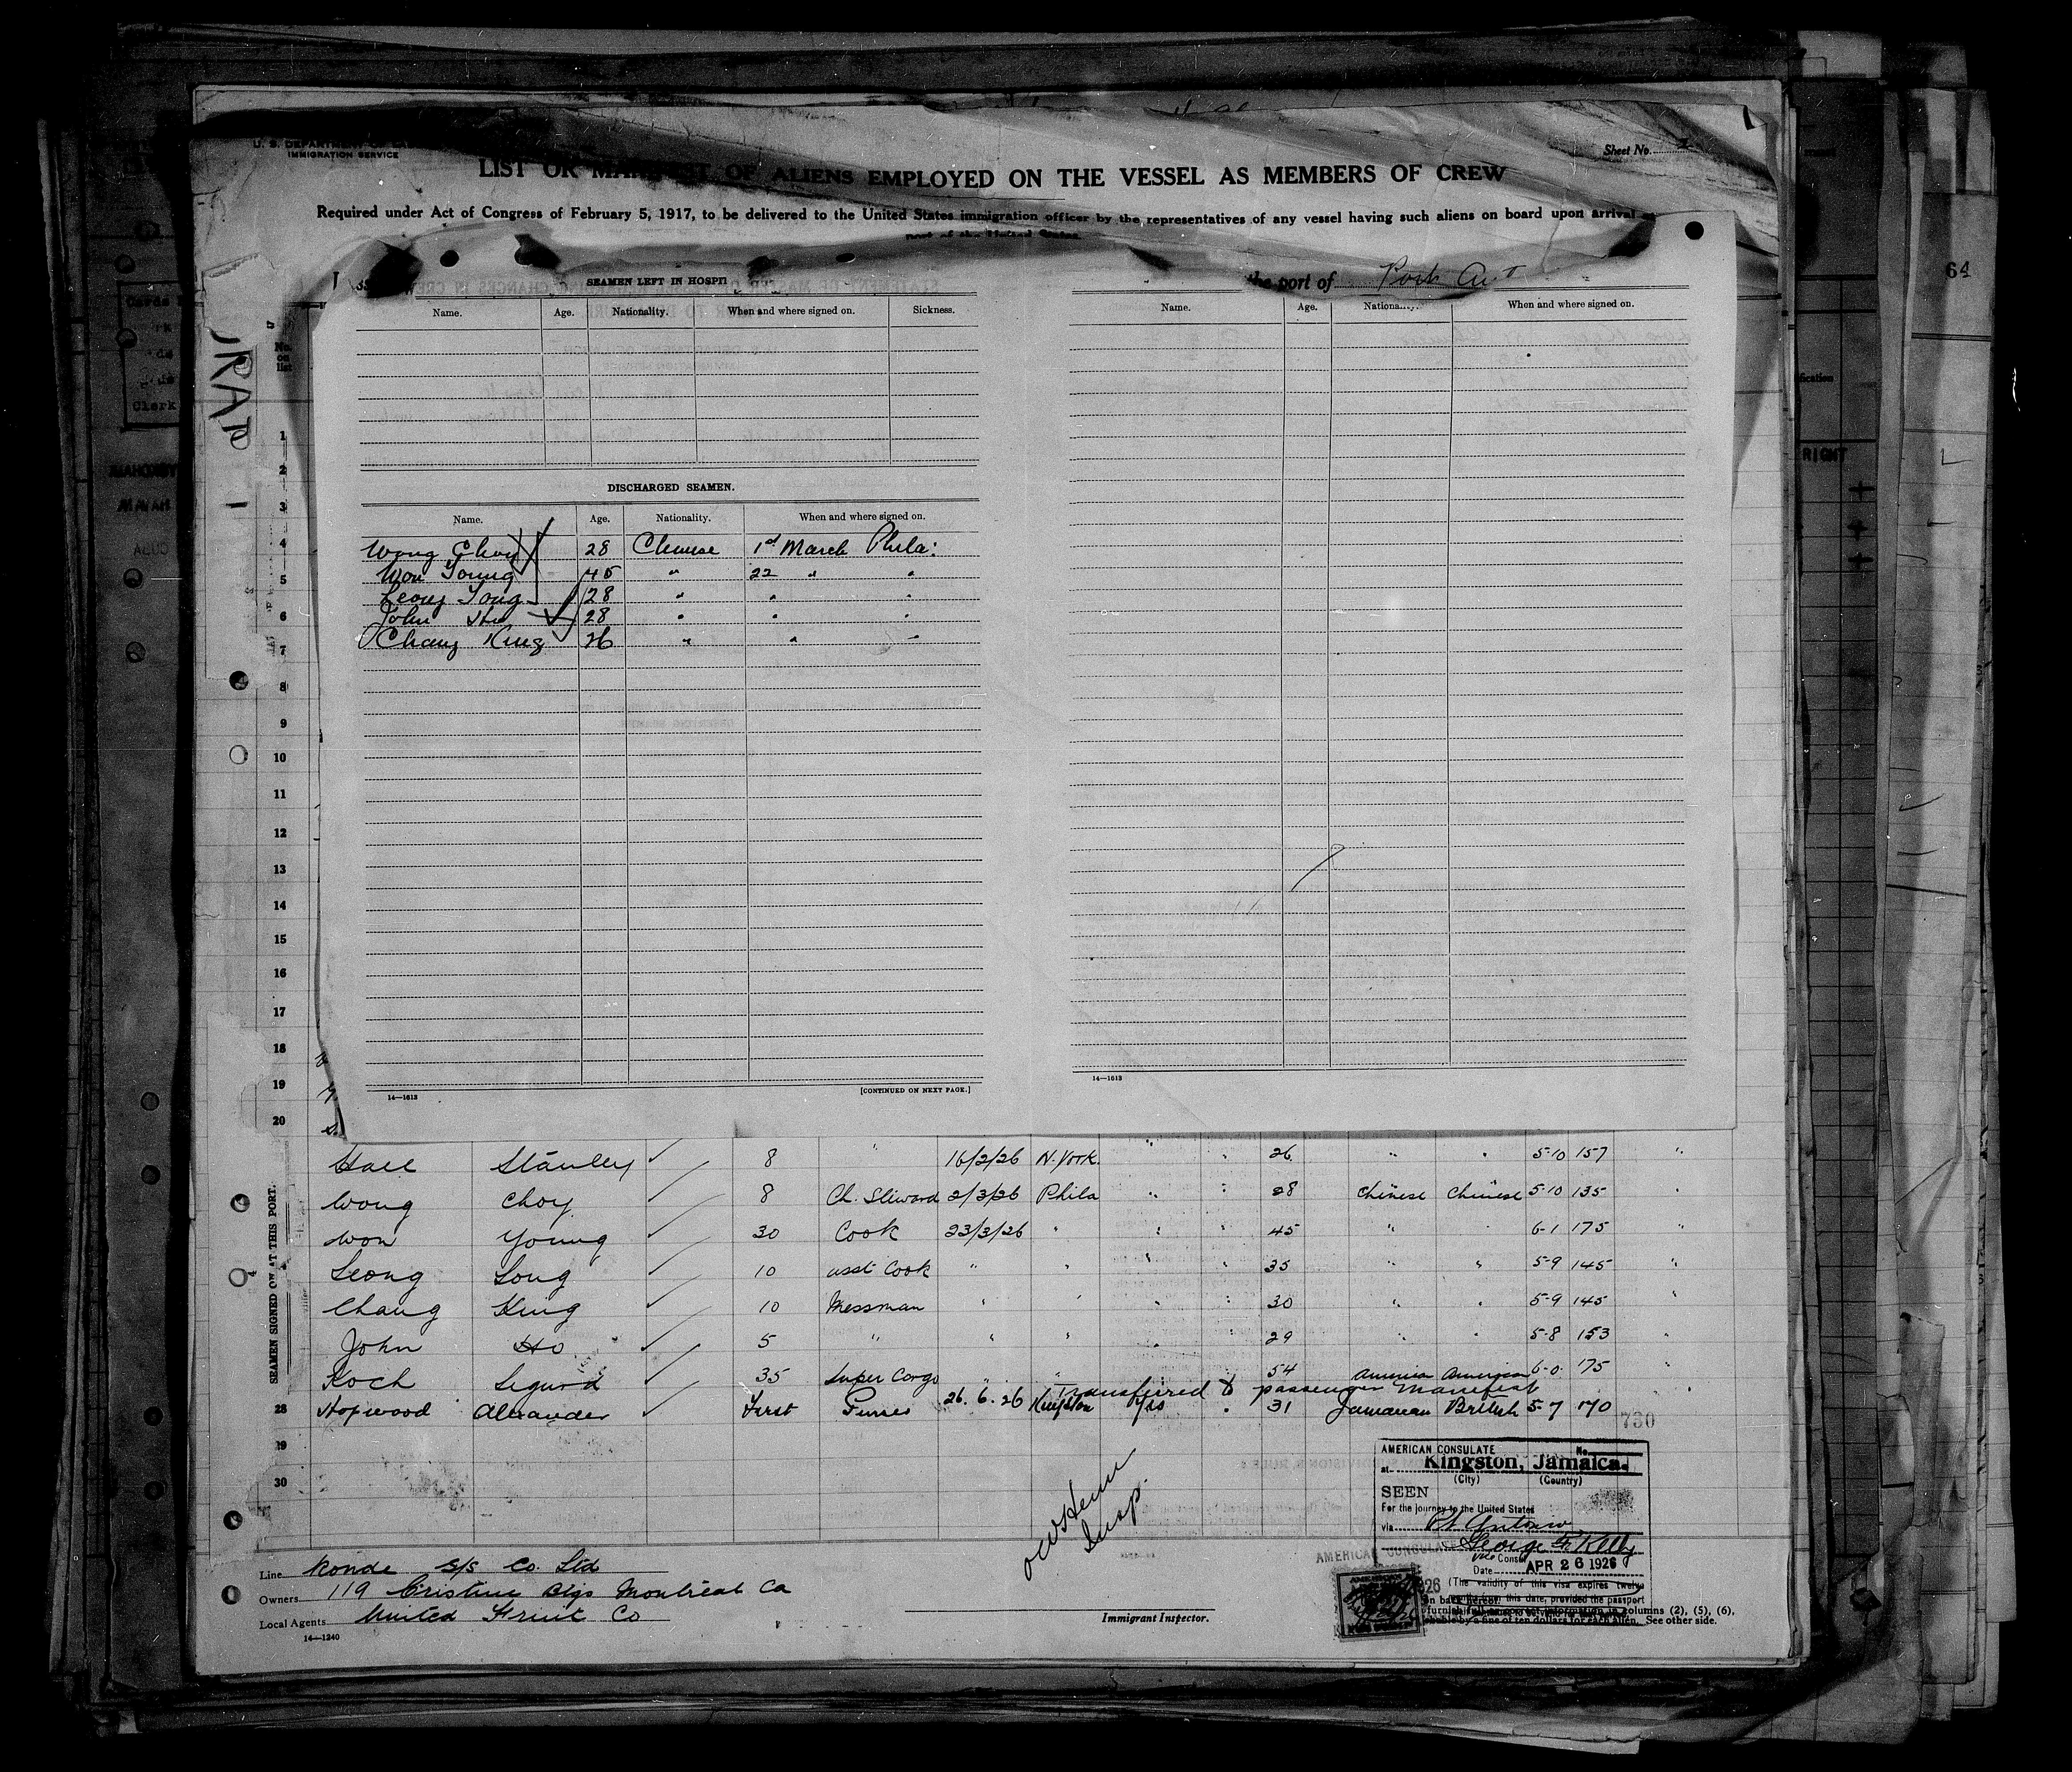 U. S. DEPARTMENT OF
IMMIGRATION SERVICE
Sheet No. 2
LIST OR MANIFEST OF ALIENS EMPLOYED ON THE VESSEL AS MEMBERS OF CREW
Required under Act of Congress of February 5, 1917, to be delivered to the United States immigration officer by the representatives of any vessel having such aliens on board upon arrival at
port of the United States
the port of Port
SEAMEN LEFT IN HOSPI
Name. Age. Nationality. When and where signed on. Sickness.
Name. Age. Nationality. When and where signed on.
No. on list
DISCHARGED SEAMEN.
Name. Age. Nationality. When and where signed on.
Wong Choy 28 Chinese 1st March Phila:
Won Young 45 " 22 " "
Leong Song 28 " " "
John Ho 28 " " "
Chang King 26 " " "
1
2
3
4
5
6
7
8
9
10
11
12
13
14
15
16
17
18
19
20
14—1613
[CONTINUED ON NEXT PAGE.]
14—1613
SEAMEN SIGNED ON AT THIS PORT.
Hall Stanley 8 " 16/2/26 N. York. " " 26 " " 5-10 157 "
Wong Choy 8 Ch. Steward 2/3/26 Phila " " 28 Chinese Chinese 5-10 135 "
Won Young 30 Cook 23/3/26 " " " 45 " " 6-1 175 "
Leong Song 10 asst Cook " " " " 35 " " 5-9 145 "
Chang King 10 Messman " " " " 30 " " 5-9 145 "
John Ho 5 " " " " " 29 " " 5-8 153 "
Koch Sigurd 35 Super Cargo " " 54 America American 6-0 175 "
Transferred to passenger manifest
28 Hopwood Alexander First 26.6.26 Kingston Yes " 31 Jamaican British 5-7 170
730
29
30
Insp.
AMERICAN CONSULATE No.
at Kingston, Jamaica.
(City) (Country)
SEEN
For the journey to the United States
via Pt Antonio
George F. Kelly
Vice Consul
Date APR 26 1926
(The validity of this visa expires twelve
from this date, provided the passport
Line Ronde S/S Co. Ltd
Owners 119 Cristine Blgs Montreal Ca
Local Agents United Fruit Co
14—1240
Immigrant Inspector.
columns (2), (5), (6),
by a fine of ten dollars for each alien. See other side.
64
RIGHT